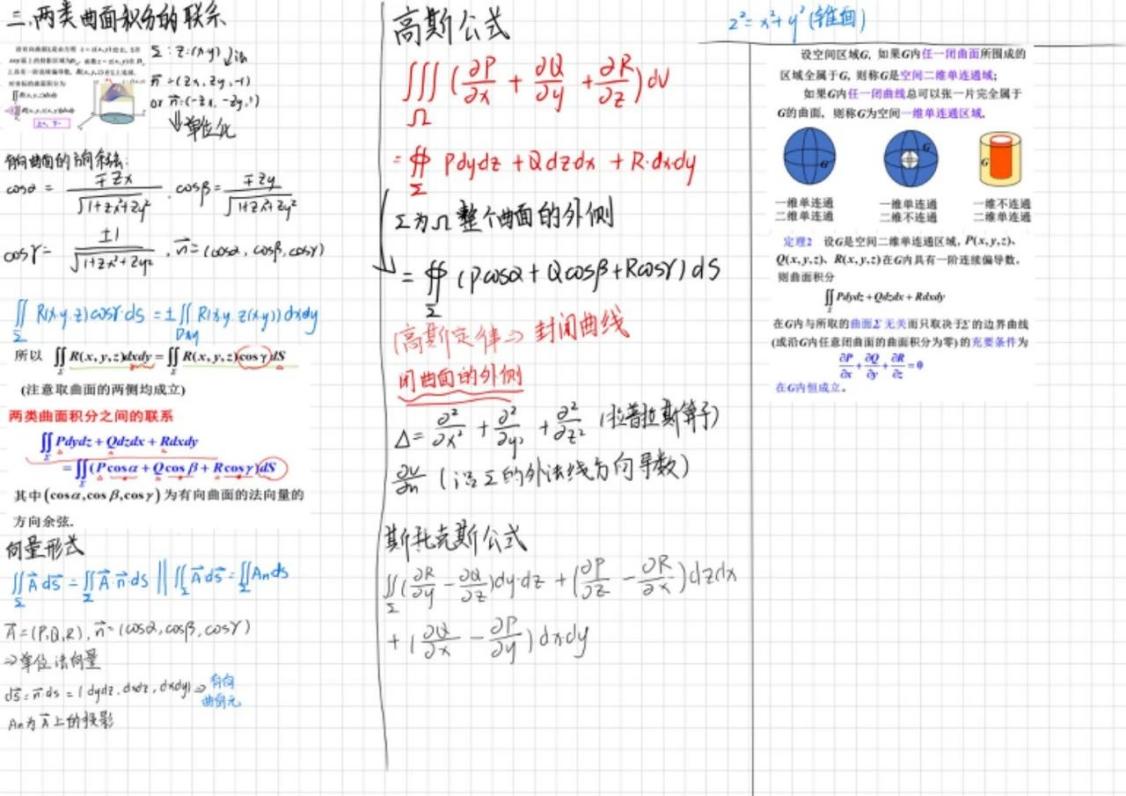 二、两类曲面积分的联系
Σ:z=z(x,y)
n=(zx,zy,-1)
or n=(-zx,-zy,1)
单位化
有向曲面的方向余弦:
cosα = ∓zx/√(1+zx²+zy²) . cosβ = ∓zy/√(1+zx²+zy²)
cosγ = ±1/√(1+zx²+zy²) , n=(cosα,cosβ,cosγ)
∬Σ R(x,y,z)cosγ·ds = ±∬Dxy R(x,y,z(x,y))dxdy
所以 ∬Σ R(x,y,z)dxdy = ∬Σ R(x,y,z)cosγdS
(注意取曲面的两侧均成立)
两类曲面积分之间的联系
∬Σ Pdydz + Qdzdx + Rdxdy
=∬Σ(Pcosα + Qcosβ + Rcosγ)dS
其中(cosα,cosβ,cosγ)为有向曲面的法向量的
方向余弦.
向量形式
∬Σ A ds = ∬Σ A·n·ds || ∬Σ A ds = ∬Σ An ds
A=(P,Q,R), n=(cosα,cosβ,cosγ)
⇒单位法向量
ds=n ds=(dydz,dxdz,dxdy)⇒有向
曲面元
An为A上的投影
高斯公式
∭Ω (∂P/∂x + ∂Q/∂y + ∂R/∂z)dV
= ∯Σ Pdydz + Qdzdx + R·dxdy
Σ为Ω整个曲面的外侧
= ∯Σ (Pcosα+Qcosβ+Rcosγ)dS
(高斯定律⇒封闭曲线
闭曲面的外侧
Δ= ∂²/∂x² + ∂²/∂y² + ∂²/∂z² (拉普拉斯算子)
∂v/∂n (沿Σ的外法线方向导数)
斯托克斯公式
∬Σ(∂R/∂y - ∂Q/∂z)dy·dz + (∂P/∂z - ∂R/∂x)dzdx
+ (∂Q/∂x - ∂P/∂y)dxdy
z²=x²+y²(锥面)
设空间区域G, 如果G内任一闭曲面所围成的
区域全属于G, 则称G是空间二维单连通域;
如果G内任一闭曲线总可以张一片完全属于
G的曲面, 则称G为空间一维单连通区域.
G G G
一维单连通 一维单连通 一维不连通
二维单连通 二维不连通 二维单连通
定理2 设G是空间二维单连通区域, P(x,y,z)、
Q(x,y,z)、R(x,y,z)在G内具有一阶连续偏导数,
则曲面积分
∬Σ Pdydz + Qdzdx + Rdxdy
在G内与所取的曲面Σ无关而只取决于Σ的边界曲线
(或沿G内任意闭曲面的曲面积分为零)的充要条件为
∂P/∂x + ∂Q/∂y + ∂R/∂z = 0
在G内恒成立。